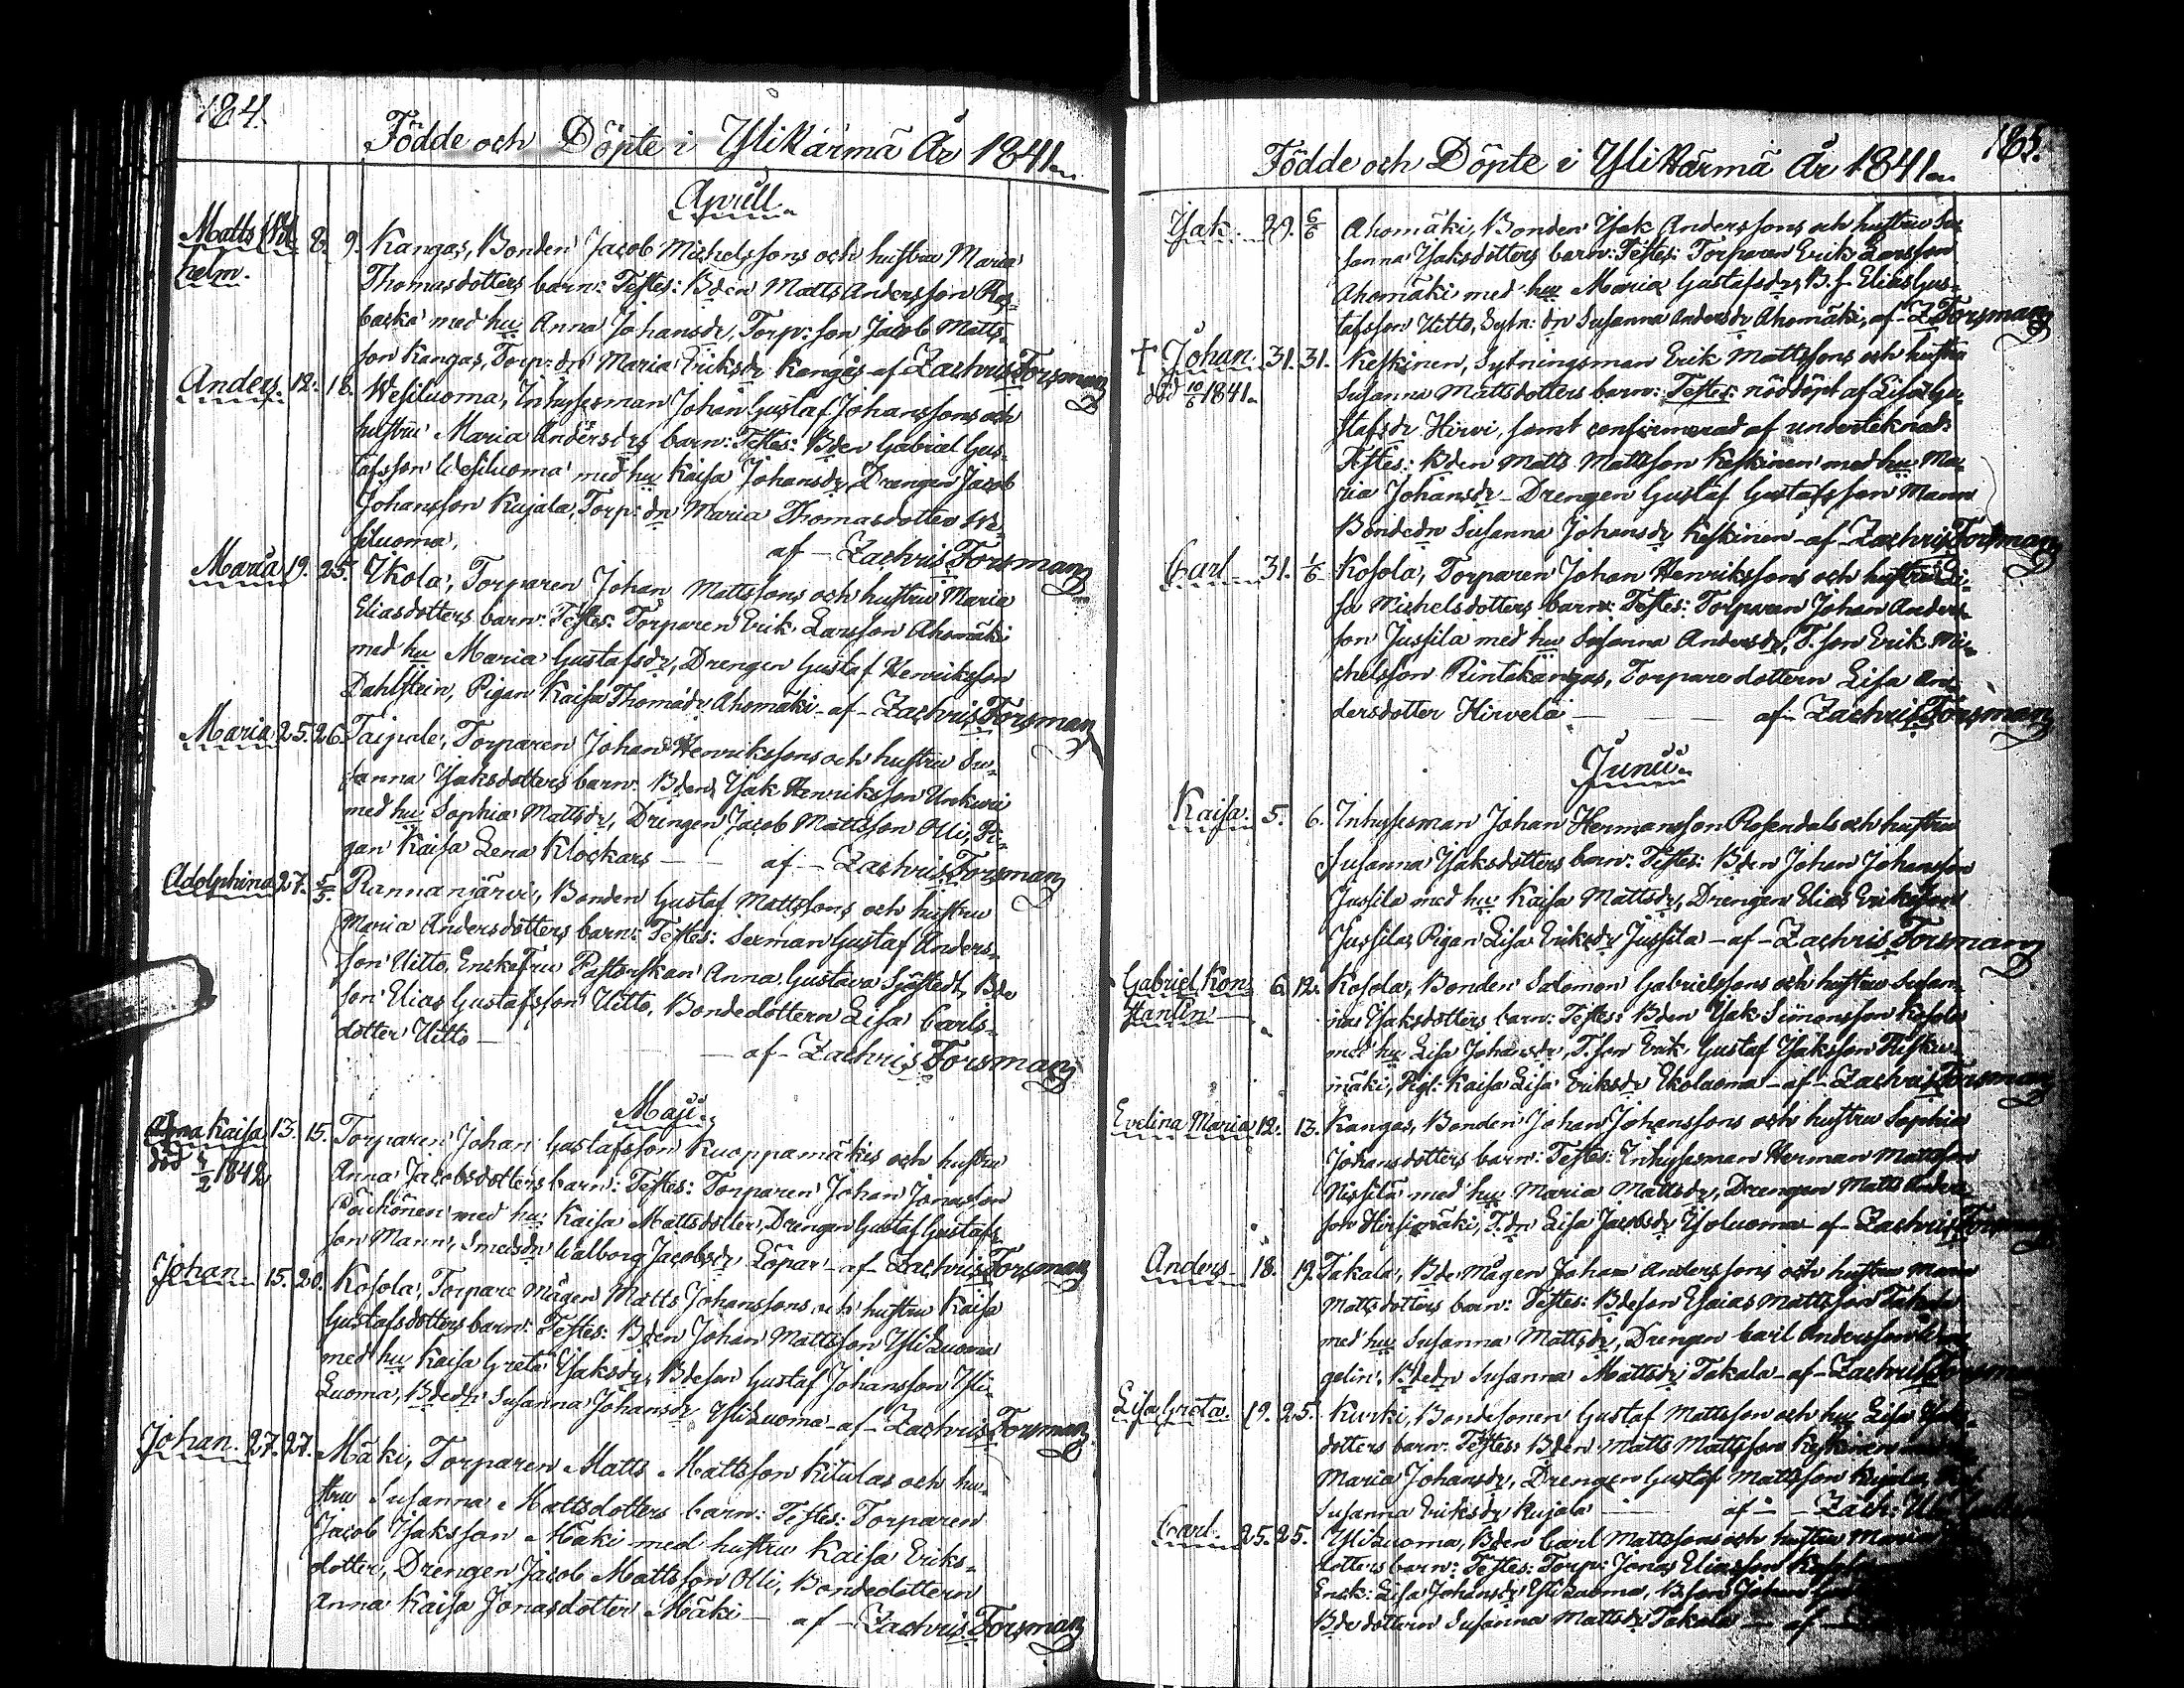 184.
Födde och Döpte i YliKärmä År 1841.
Aprill.
Matts Wil 8. 9. Kangas, Bonden Jacob Michelssons och hustru Maria
helm. Thomasdotters barn: Testes: Bden Matts Andersson
backa med hu Anna Johansdr, Torp: son Jacob Matts-
son Kangas, Torp: dr Maria Eriksdr Kangas af Zachris Forsman
Anders. 12. 18. Wesiluoma, Inhysesman Johan Gustaf Johanssons och
hustru Maria Andersdrs barn: Testes: Bden Gabriel Gus-
tafsson Wesiluoma med hu Kaisa Johansdr, Drengen Jacob
Johansson Kujala, Torp: dr Maria Thomasdotter We-
siluoma, af - Zachris Forsman
Maria 19. 25. Ikola, Torparen Johan Mattssons och hustru Maria
Eliasdotters barn: Testes: Torparen Erik Larsson Ahomäki
med hu Maria Gustafsdr, Drengen Gustaf Henriksson
Dahlstein, Pigan Kaisa Thomasdr Ahomäki - af - Zachris Forsman
Maria 25. 26. Taipale, Torparen Johan Henrikssons och hustru Su-
sanna Isaksdotters barn: Bden Isak Henriksson
med hu Sophia Mattsdr, Drengen Jacob Mattsson Olli, Pi-
gan Kaisa Lena Klockars - af - Zachris Forsman
Adolphina 27. 5/5. Rannanjärvi, Bonden Gustaf Mattssons och hustru
Maria Andersdotters barn: Testes: Sexman Gustaf Anders-
son Uitto, Enckefru Pastorskan Anna Gustava Sjöstedt, Bde
son Elias Gustafsson Uitto, Bondedottern Lisa Carls-
dotter Uitto - af - Zachris Forsman
Maji.
Anna Kaisa 13. 15. Torparen Johan Gustafsson Kuoppamäkis och hustru
död 4/2 1842 Anna Jacobsdotters barn: Testes: Torparen Johan Jonasson
med hu Kaisa Mattsdotter, Drengen Gustaf Gustafs-
son Mann, Smedsdr Walborg Jacobsdr Löpar - af - Zachris Forsman
Johan 15. 20. Kosola, Torpare Mågen Matts Johanssons och hustru Kaisa
Gustafsdotters barn: Testes: Bden Johan Mattsson YliLuoma
med hu Kaisa Greta Isaksdr, Bdeson Gustaf Johansson Yli-
Luoma, Bdedr Susanna Johansdr YliLuoma - af - Zachris Forsman
Johan. 27. 27. Mäki, Torparen Matts Mattsson Kitulas och hu-
stru Susanna Mattsdotters barn: Testes: Torparen
Jacob Isaksson Mäki med hustru Kaisa Eriks-
dotter, Drengen Jacob Mattsson Olli, Bondedottern
Anna Kaisa Jonasdotter Mäki - af - Zachris Forsman
185.
Födde och Döpte i YliKärmä År 1841.
Isak. 29. 6/6 Ahomäki, Bonden Isak Anderssons och hustru Su-
sanna Isaksdotters barn: Testes: Torparen Erik Larsson
Ahomäki med hu Maria Gustafsdr, B.s. Elias Gus-
tafsson Uitto, Sytn: dr Susanna Andersdr Ahomäki, af - Z Forsman
† Johan. 31. 31. Keskinen, Sytningsman Erik Mattssons och hustru
död 10/6 1841. Susanna Mattsdotters barn: Testes: nöddöpt af Lisa Gu-
stafsdr Hirvi, samt confirmerad af undertecknad:
Testes: Bden Matts Mattsson Keskinen med hu Ma-
ria Johansdr - Drengen Gustaf Gustafsson Mann
Bondedr Susanna Johansdr Keskinen - af - Zachris Forsman
Carl 31. 1/6 Kosola, Torparen Johan Henrikssons och hustru Li-
sa Michelsdotters barn: Testes: Torparen Johan Anders-
son Jussila med hu Susanna Andersdr, T. son Erik Mi-
chelsson Rintakangas, Torpare dottern Lisa An-
dersdotter Hirvelä - af - Zachris Forsman
Junii.
Kaisa. 5. 6. Inhysesman Johan Hermansson Rosendals och hustru
Susanna Isaksdotters barn: Testes: Bden Johan Johansson
Jussila med hu Kaisa Mattsdr, Drengen Elias Eriksson
Jussila, Pigan Lisa Eriksdr Jussila - af - Zachris Forsman
Gabriel Kon- 6. 12. Kosola, Bonden Salomon Gabrielssons och hustru Susan-
stantin nas Isaksdotters barn: Testes: Bden Isak Simonsson Kosola
med hu Lisa Johansdr, T. son Erik Gustaf Isaksson
mäki, Pig: Kaisa Lisa Eriksdr Ekoluoma - af - Zachris Forsman
Evelina Maria 12. 13. Kangas, Bonden Johan Johanssons och hustru Sophia
Johansdotters barn: Testes: Inhysesman Herman Mattsson
Nissilä med hu Maria Mattsdr, Drengen Matts Anders-
son Hirsimäki, T.dr Lisa Jacobsdr Isoluoma - af - Zachris Forsman
Anders 18. 19. Takala, Bde Mågen Johan Anderssons och hustru Maria
Mattsdotters barn: Testes: Bdeson Esaias Mattsson Takala
med hu Susanna Mattsdr, Drengen Carl Andersson
gelin, Bdedr Susanna Mattsdr Takala - af - Zachris Forsman
Lisa Greta. 19. 25. Kurki, Bondesonen Gustaf Mattsson och hu Lisa
dotters barn: Testes: Bden Matts Mattsson Keskinen
Maria Johansdr, Drengen Gustaf Mattsson Kujala,
Susanna Eriksdr Kujala - af - Zach:
Carl. 25. 25. YliLuoma, Bden Carl Mattssons och hustru Maria
dotters barn: Testes: Torp: Jonas Eliasson
Enck: Lisa Johansdr YliLuoma, Bson Johan
Bde dottern Susanna Mattsdr Takala - af -